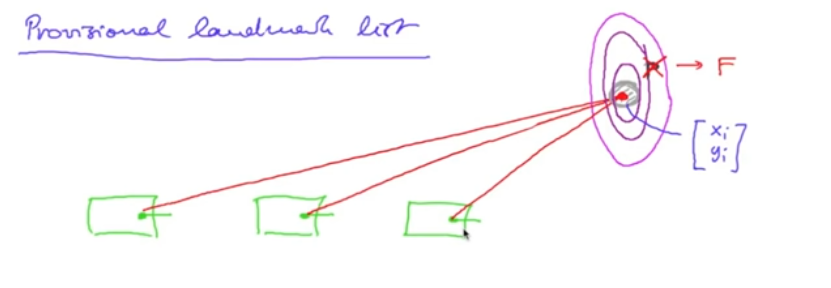 Provisional landmark list
→ F
[xi
yi]